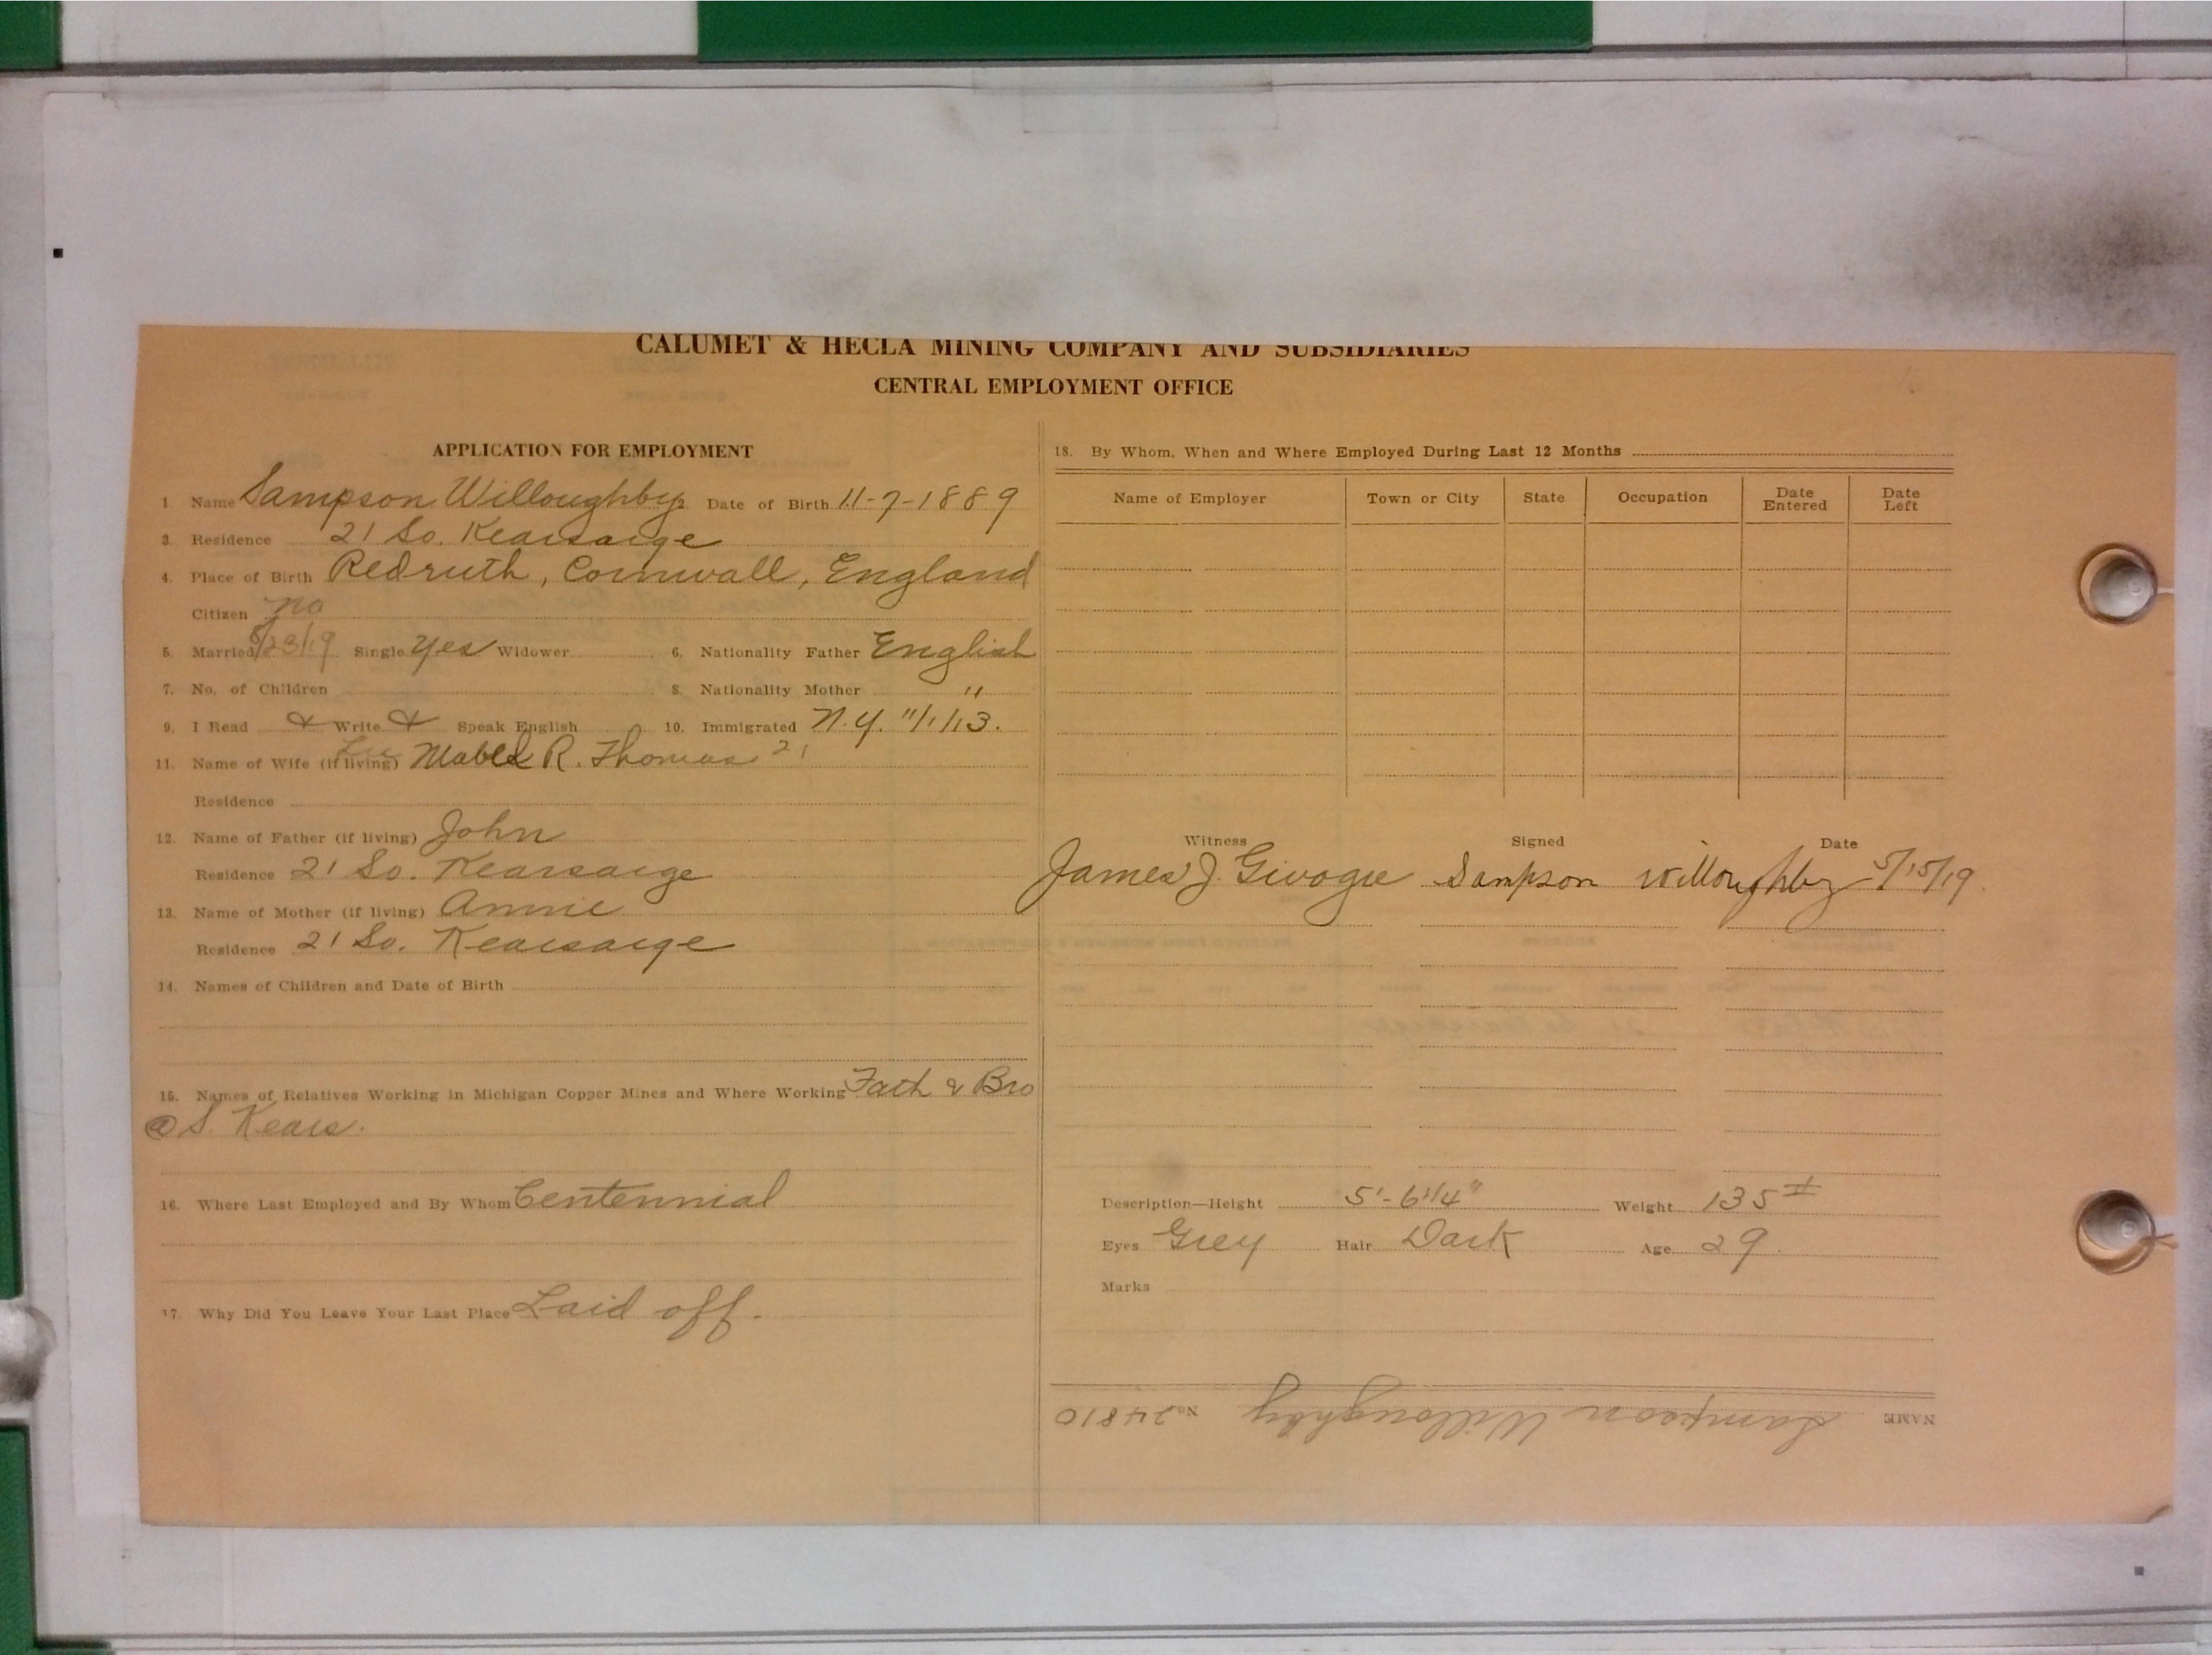 CALUMET & HECLA MINING COMPANY AND SUBSIDIARIES
CENTRAL EMPLOYMENT OFFICE
APPLICATION FOR EMPLOYMENT
1. Name Sampson Willoughby 2. Date of Birth 11-7-1889
3. Residence 21 So. Kearsarge
4. Place of Birth Redruth, Cornwall, England
Citizen no
5. Married 8/23/19 Single Yes Widower 6. Nationality Father English
7. No. of Children 8. Nationality Mother "
9. I Read & Write & Speak English 10. Immigrated N.Y. 11/1/13.
11. Name of Wife (if living) Mabel R. Thomas 21
Residence
12. Name of Father (if living) John
Residence 21 So. Kearsarge
13. Name of Mother (if living) Annie
Residence 21 So. Kearsarge
14. Names of Children and Date of Birth
15. Names of Relatives Working in Michigan Copper Mines and Where Working Fath & Bro
@ S. Kears.
16. Where Last Employed and By Whom Centennial
17. Why Did You Leave Your Last Place Laid off.
18. By Whom, When and Where Employed During Last 12 Months
Name of Employer Town or City State Occupation Date Entered Date Left
Witness Signed Date
James J. Sampson Willoughby 5/15/19
Description—Height 5'-6 1/4" Weight 135 #
Eyes Grey Hair Dark Age 29
Marks
NAME Sampson Willoughby No. 24810